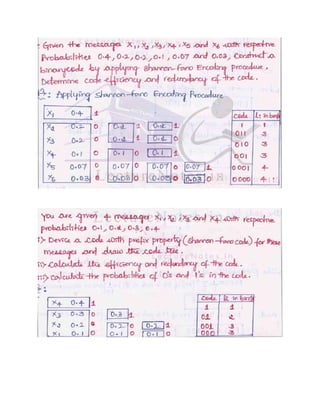 : Given the messages X1, X2, X3, X4, X5 and X6 with respective
Probabilities 0.4, 0.2, 0.2, 0.1, 0.07 and 0.03, Construct a
binary code by applying Shannon-Fano Encoding procedure.
Determine code efficiency and redundancy of the code.
: Applying Shannon-Fano Encoding Procedure
X1 0.4 1
X2 0.2 0 0.2 1 0.2 1
X3 0.2 0 0.2 1 0.2 0
X4 0.1 0 0.1 0 0.1 1
X5 0.07 0 0.07 0 0.07 0 0.07 1
X6 0.03 0 0.03 0 0.03 0 0.03 0
Code li in
1 1
011 3
010 3
001 3
0001 4
0000 4
You are given 4 messages X1, X2, X3 and X4 with respective
probabilities 0.1, 0.2, 0.3, 0.4
i> Device a code with prefix property (Shannon-Fano code) for these
messages and draw the code tree
ii> Calculate its efficiency and redundancy of the code.
iii> Calculate the probabilities of 0's and 1's in the code.
:
X4 0.4 1
X3 0.3 0 0.3 1
X2 0.2 0 0.2 0 0.2 1
X1 0.1 0 0.1 0 0.1 0
Code li in
1 1
01 2
001 3
000 3